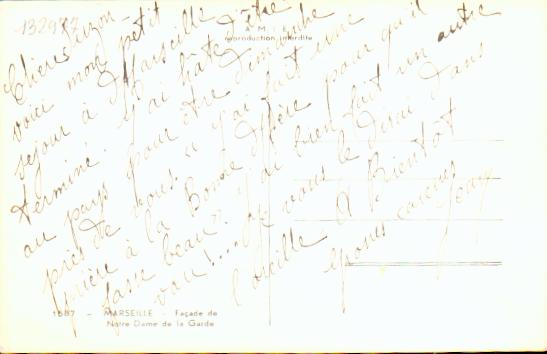 132972
A M I
reproduction interdite
Chère Suzon -
voici mon petit
séjour à Marseille
terminé. J'ai hâte d'être
au pays pour être dimanche
près de vous. J'ai fait une
prière à la Bonne Mère pour qu'il
fasse beau. J'ai bien fait un autre
vœu !... Je vous le dirai dans
l'oreille. A Bientôt
Jean
1587 - MARSEILLE - Façade de
Notre Dame de la Garde